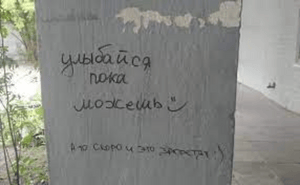 улыбайся
пока
можешь
А то скоро и это запретят :)